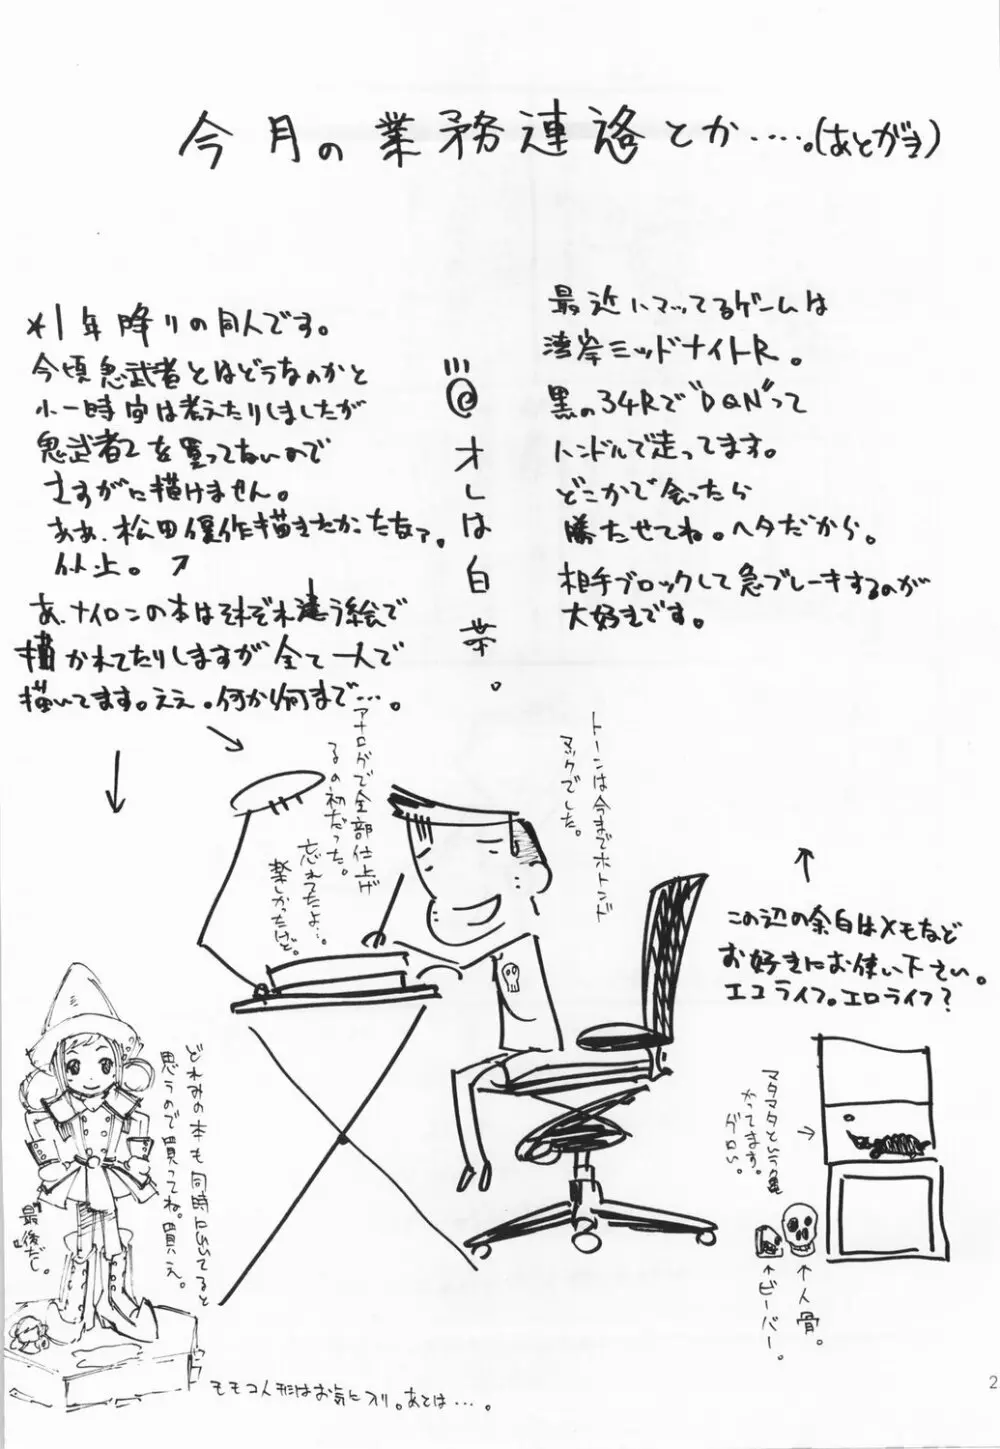 今月の業務連絡とか……。(あとがき)
*1年降りの同人です。
今頃鬼武者とはどうなのかと
小一時間は考えたりしましたが
鬼武者2を買ってないので
さすがに描けません。
ああ、松田優作描きたかったなァ。
以上。
あ、ナイロンの本はそれぞれ違う絵で
描かれてたりしますが全て一人で
描いてます。ええ。何から何まで…。
@オレは白帯。
最近ハマッてるゲームは
湾岸ミッドナイトR。
黒の34Rで"DQN"って
ハンドルで走ってます。
どこかで会ったら
勝たせてね。ヘタだから。
相手ブロックして急ブレーキするのが
大好きです。
トーンは今までホトンド
マックでした。
アナログで全部仕上げ
るの初だった。
忘れてたよ…。
楽しかったけど。
この辺の余白はメモなど
お好きにお使い下さい。
エコライフ。エロライフ?
マタマタという亀
かってます。
グロい。
↑人骨。
↑ビーバー。
どれみの本も同時にでてると
思うので買ってね。買え。
最後だし。
モモコ人形はお気に入り。あとは…。
2